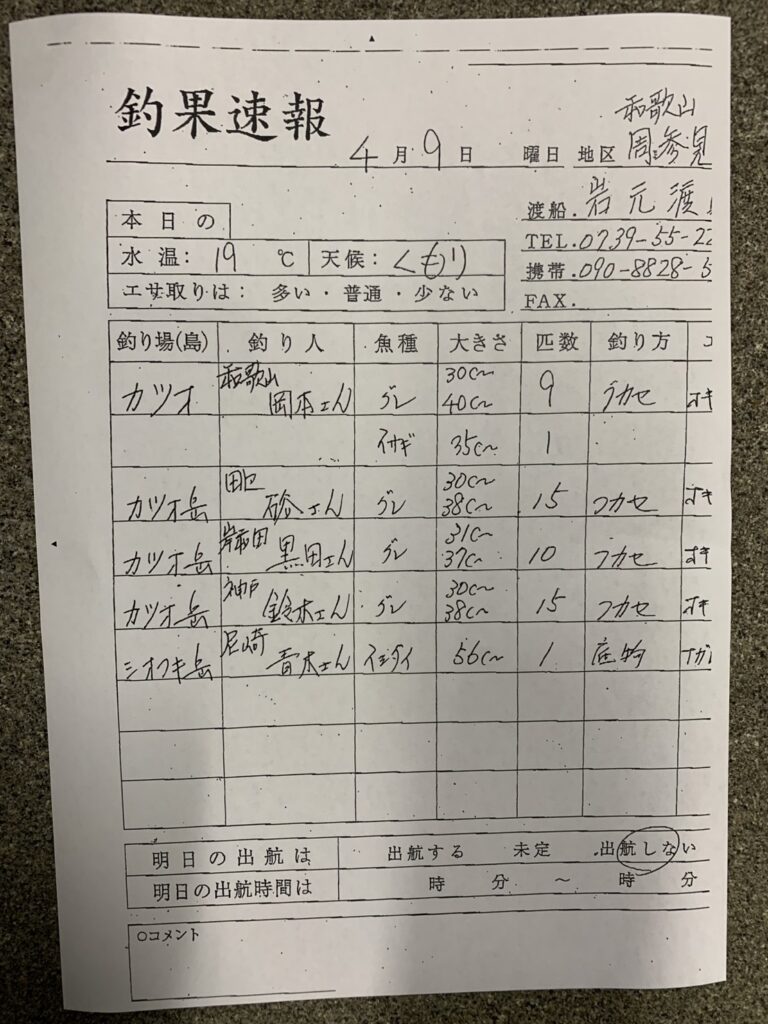 釣果速報
和歌山
4月9日 曜日 地区 周参見
渡船.岩元渡
本日の
TEL.0739-55-22
水温: 19 ℃ 天候: くもり
携帯.090-8828-5
エサ取りは: 多い・普通・少ない
FAX.
釣り場(島) 釣り人 魚種 大きさ 匹数 釣り方
カツオ 和歌山 岡本さん グレ 30㎝~40㎝ 9 フカセ オキ
イサギ 35㎝ 1
カツオ岳 田辺 谷さん グレ 30㎝~38㎝ 15 フカセ オキ
カツオ岳 岸和田 黒田さん グレ 31㎝~37㎝ 10 フカセ オキ
カツオ岳 神戸 鈴木さん グレ 30㎝~38㎝ 15 フカセ オキ
シオフキ岳 尼崎 青木さん イシダイ 56㎝ 1 底物
明日の出航は 出航する 未定 出航しない
明日の出航時間は 時 分 ~ 時 分
○コメント